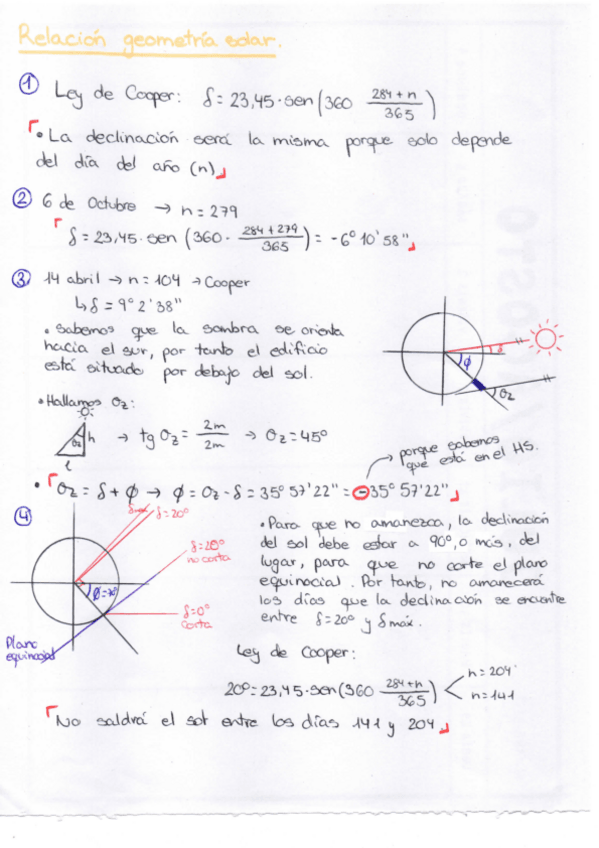 Relación geometría solar.
① Ley de Cooper: δ = 23,45·sen(360 (284+n)/365)
• La declinación será la misma porque solo depende
del día del año (n)
② 6 de Octubre → n = 279
δ = 23,45·sen (360· (284+279)/365) = -6° 10' 58"
③ 14 abril → n = 104 → Cooper
↳ δ = 9° 2' 38"
• Sabemos que la sombra se orienta
hacia el sur, por tanto el edificio
está situado por debajo del sol.
δ
ϕ
θz
• Hallamos θz:
θz h → tg θz = 2m/2m → θz = 45°
l
porque sabemos
que está en el HS.
• θz = δ + ϕ → ϕ = θz - δ = 35° 57' 22" = -35° 57' 22"
④
δ = 20°
δ = 20°
no corta
δ = 0°
corta
Plano
equinocial
• Para que no amanezca, la declinación
del sol debe estar a 90°, o más, del
lugar, para que no corte el plano
equinocial. Por tanto, no amanecerá
los días que la declinación se encuentre
entre δ = 20° y δ máx.
Ley de Cooper:
20° = 23,45·sen(360 (284+n)/365) n = 204
n = 141
No saldrá el sol entre los días 141 y 204